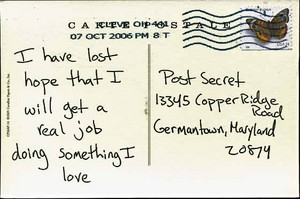 CARTE POSTALE
07 OCT 2006 PM 8 T
I have lost
hope that I
will get a
real job
doing something I
love
Post Secret
13345 Copper Ridge
Road
Germantown, Maryland
20874